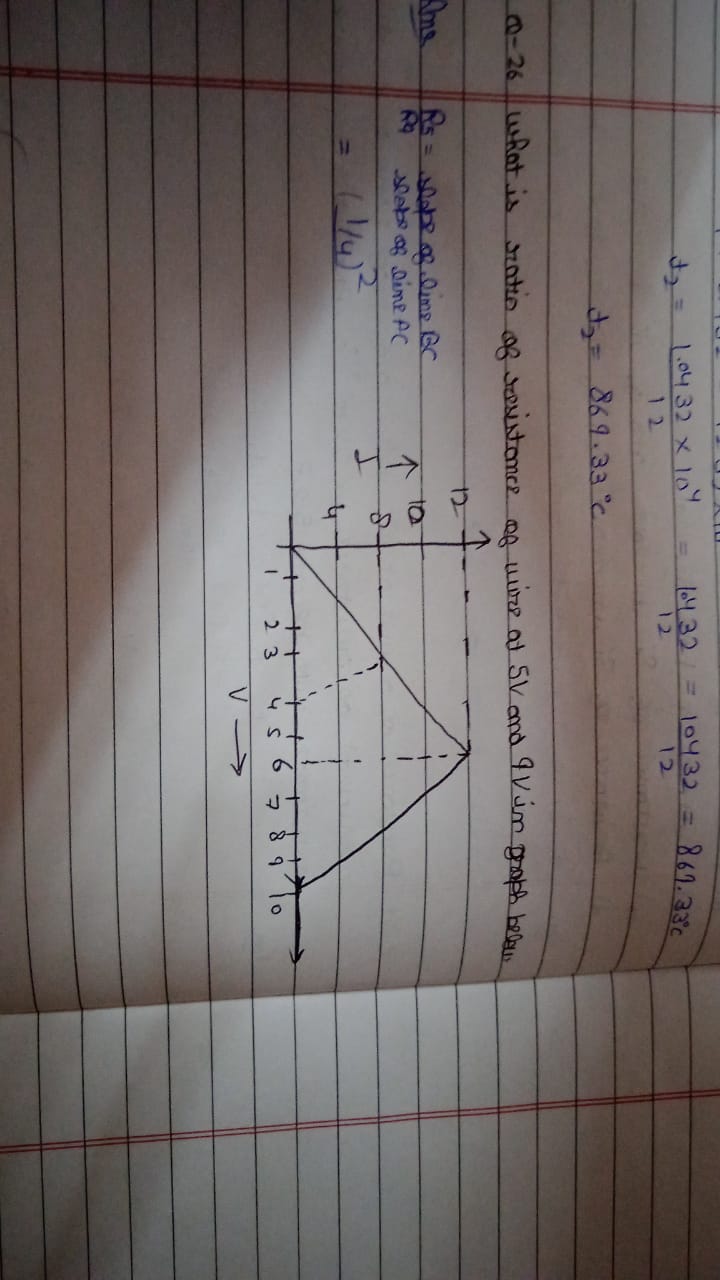 t2 = 1.0432 x 10⁴ / 12 = 10432 / 12 = 10432 / 12 = 869.33°c
t2 = 869.33°c
Q-26 what is ratio of resistance of wire at 5V and 9V in graph below
Ans R5 / R9 = slope of line BC / slope of line AC
= (1/4)²
↑
I
12
10
8
4
1 2 3 4 5 6 7 8 9 10
V →